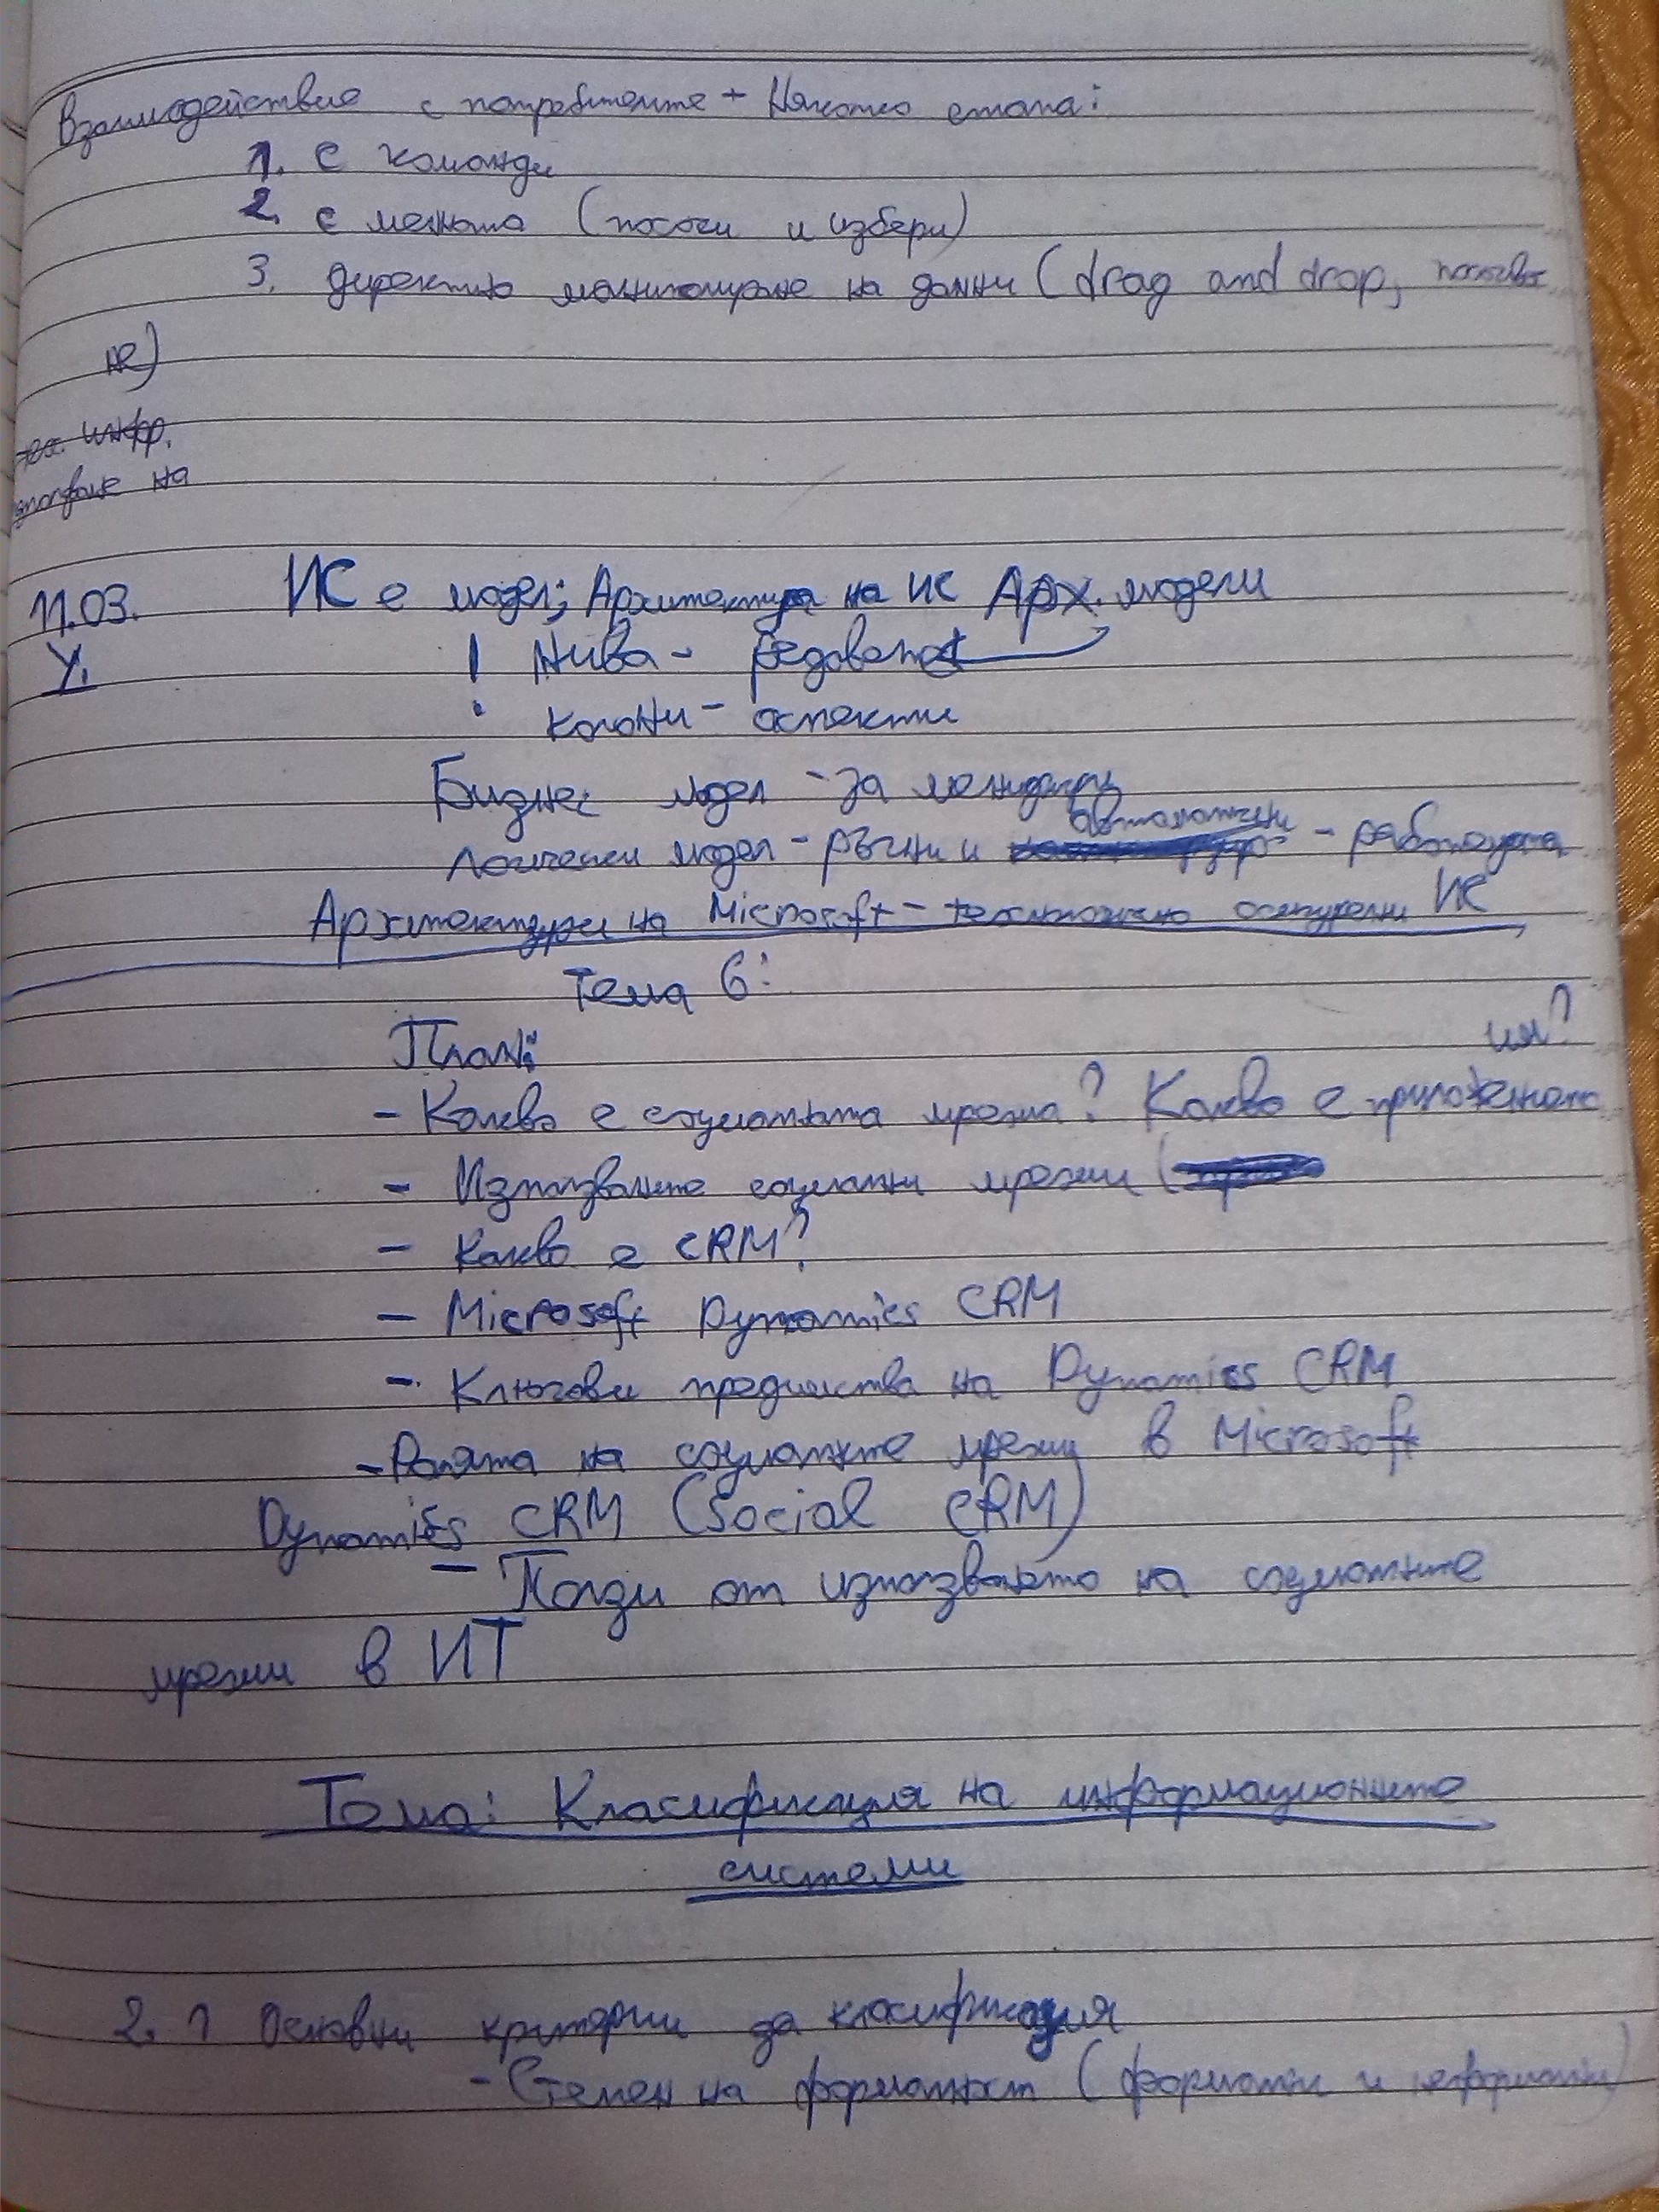 Взаимодействие с потребителите + Няколко етапа:
1. С команди
2. С менюта (посочи и избери)
3. Директно манипулиране на данни (drag and drop,
не)
инфр.
на
11.03. ИС е модел; Архитектура на ИС Арх. модели
У. ! Нива - редовете
колони - аспекти
Бизнес модел - за мениджъри
автоматични
Логически модел - ръчни и - работещата
Архитектури на Microsoft - технологично осигурени ИС
Тема 6:
План:
ия?
- Какво е социалната мрежа? Какво е приложението
- Използваните социални мрежи (
- Какво е CRM?
- Microsoft Dynamics CRM
- Ключови предимства на Dynamics CRM
- Ролята на социалните мрежи в Microsoft
Dynamics CRM (Social CRM)
- Ползи от използването на социалните
мрежи в ИТ
Тема: Класификация на информационните
системи
2. 1 Основни критерии за класификация
- Степен на формалност (формални и неформални)